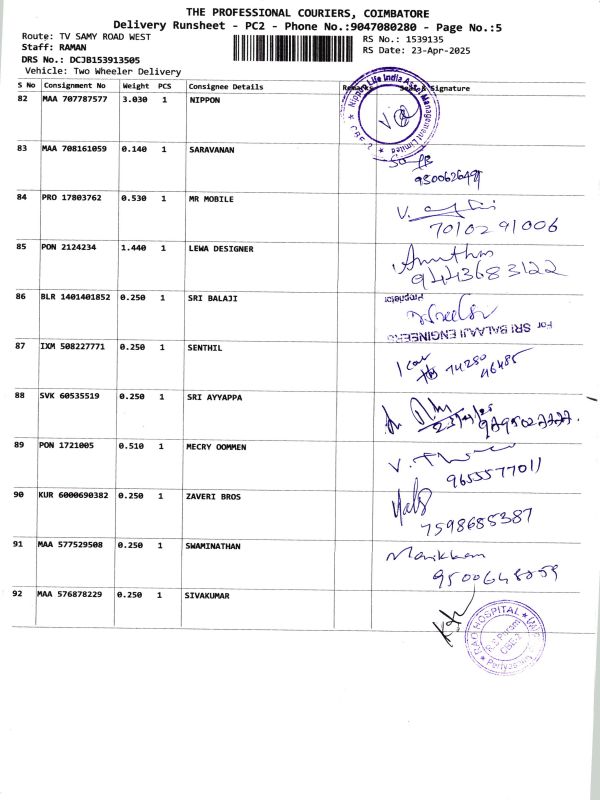 THE PROFESSIONAL COURIERS, COIMBATORE
Delivery Runsheet - PC2 - Phone No.:9047080280 - Page No.:5
Route: TV SAMY ROAD WEST
RS No.: 1539135
Staff: RAMAN
RS Date: 23-Apr-2025
DRS No.: DCJB153913505
Vehicle: Two Wheeler Delivery
S No Consignment No Weight PCS Consignee Details Remarks Seal & Signature
82 MAA 707787577 3.030 1 NIPPON
Nippon Life India Asset Management Limited
CBE-2
83 MAA 708161059 0.140 1 SARAVANAN
84 PRO 17803762 0.530 1 MR MOBILE
7010291006
85 PON 2124234 1.440 1 LEWA DESIGNER
9443683122
86 BLR 1401401852 0.250 1 SRI BALAJI
Proprietor
For SRI BALAAJI ENGINEERS
87 IXM 508227771 0.250 1 SENTHIL
74250
46485
88 SVK 60535519 0.250 1 SRI AYYAPPA
89 PON 1721005 0.510 1 MECRY OOMMEN
9655577011
90 KUR 6000690382 0.250 1 ZAVERI BROS
7598685387
91 MAA 577529508 0.250 1 SWAMINATHAN
Manikkam
92 MAA 576878229 0.250 1 SIVAKUMAR
RAO HOSPITAL
R.S Puram
CBE-2